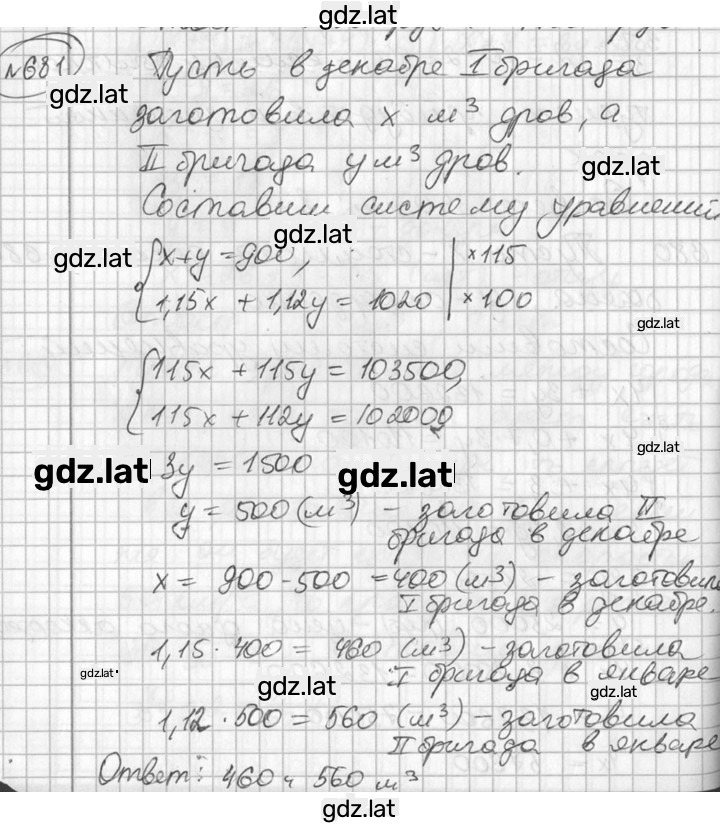 gdz.lat
№681 Пусть в декабре I бригада
gdz.lat
заготовила x м³ дров, а
II бригада y м³ дров.
gdz.lat
Составим систему уравнений
gdz.lat gdz.lat
{ x+y = 900, | ×115
1,15x + 1,12y = 1020 | ×100
gdz.lat
{ 115x + 115y = 103500,
115x + 112y = 102000
gdz.lat
gdz.lat 3y = 1500 gdz.lat
y = 500 (м³) – заготовила II
бригада в декабре
x = 900-500 = 400 (м³) – заготовила
I бригада в декабре.
1,15 · 400 = 460 (м³) – заготовила
gdz.lat I бригада в январе
gdz.lat gdz.lat
1,12 · 500 = 560 (м³) – заготовила
II бригада в январе
Ответ: 460 и 560 м³
gdz.lat